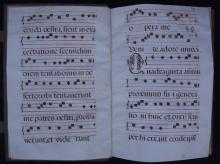 corda vestra, sicut in exa
cerbatione secundum
diem tentationis in de
serto: ubi tentauerunt
me patres vestri, proba
uerunt, et uide runt
o pera me a
Veni te adore mus
Quadraginta annis
proximus fui genera
tioni huic et dixi: sem
per hi errant corde ipsi